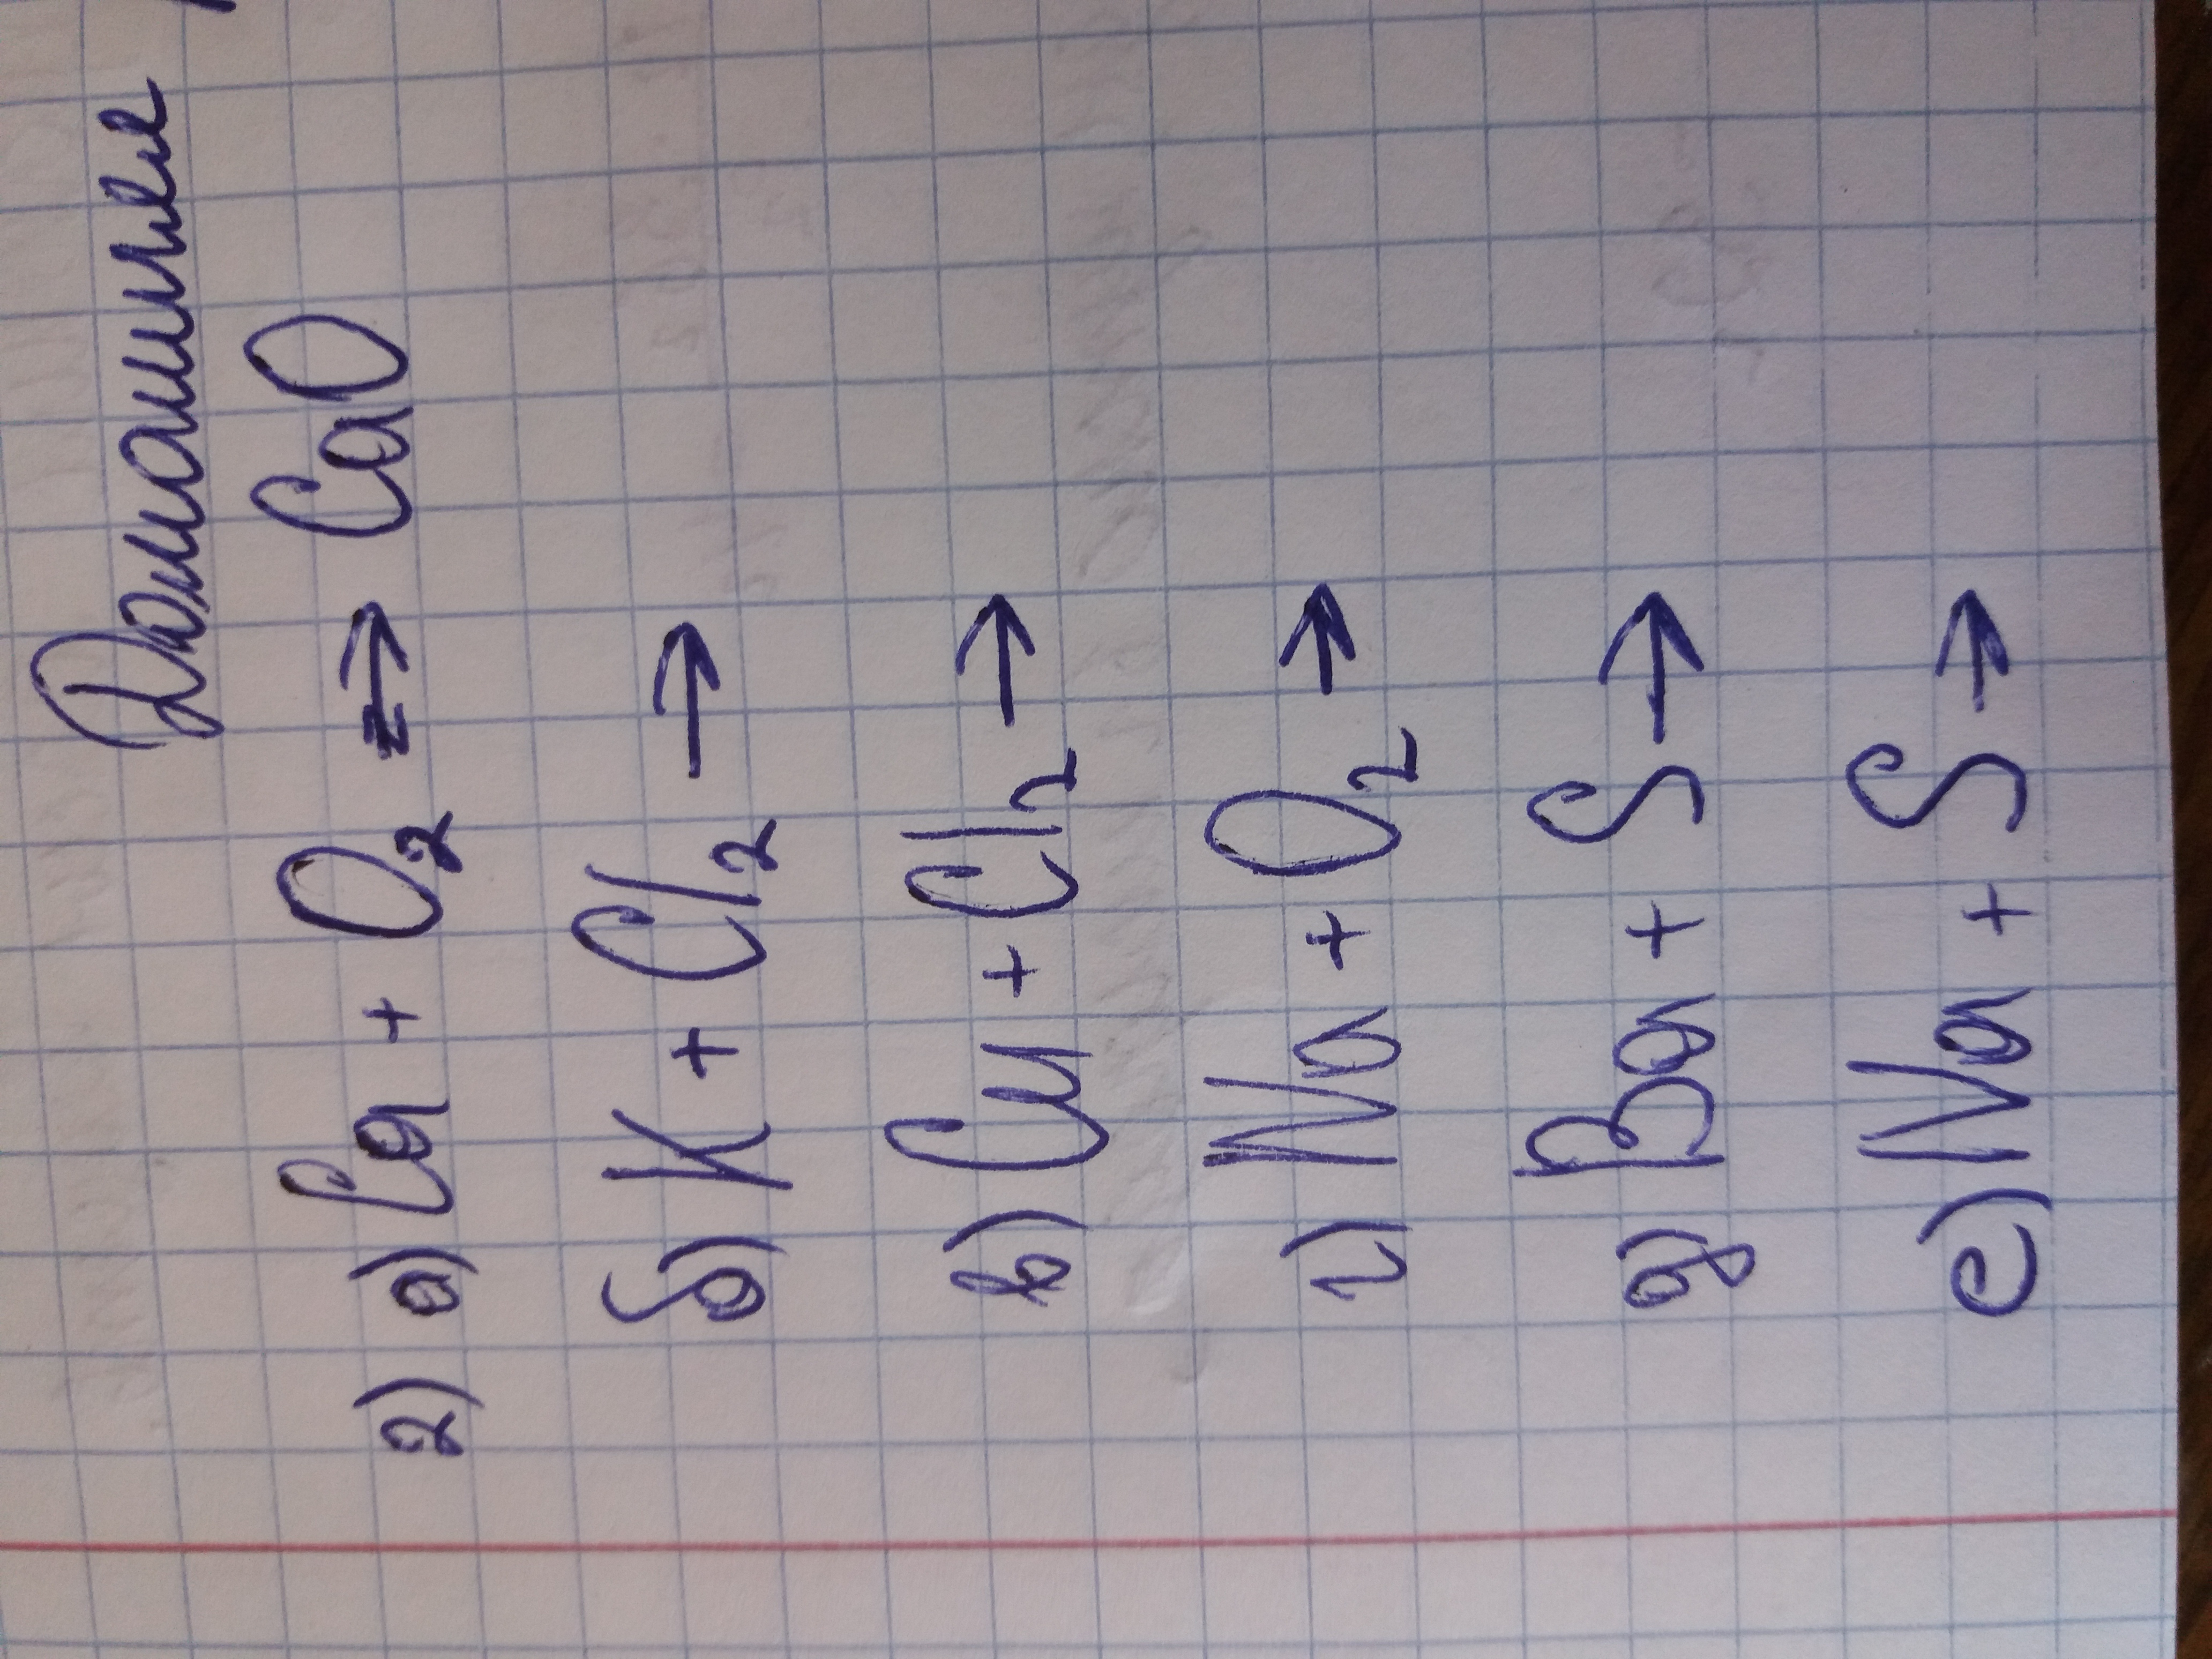 Домашняя
2) а) Ca + O₂ → CaO
б) K + Cl₂ →
в) Cu + Cl₂ →
г) Na + O₂ →
д) Ba + S →
е) Na + S →